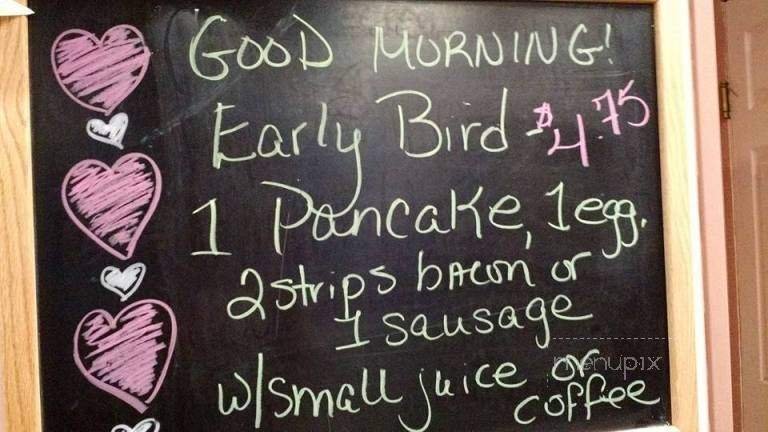 GOOD MORNING!
Early Bird - $4.75
1 Pancake, 1 egg,
2 strips bacon or
1 sausage
w/small juice or
coffee
menupix